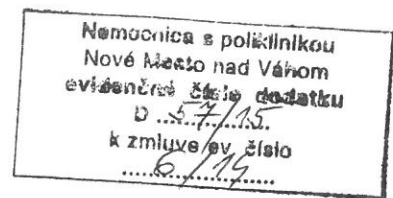 Nemocnica s poliklinikou
Nové Mesto nad Váhom
evidenčné číslo dodatku
D ..57/15.
k zmluve ev. číslo
......6/14......